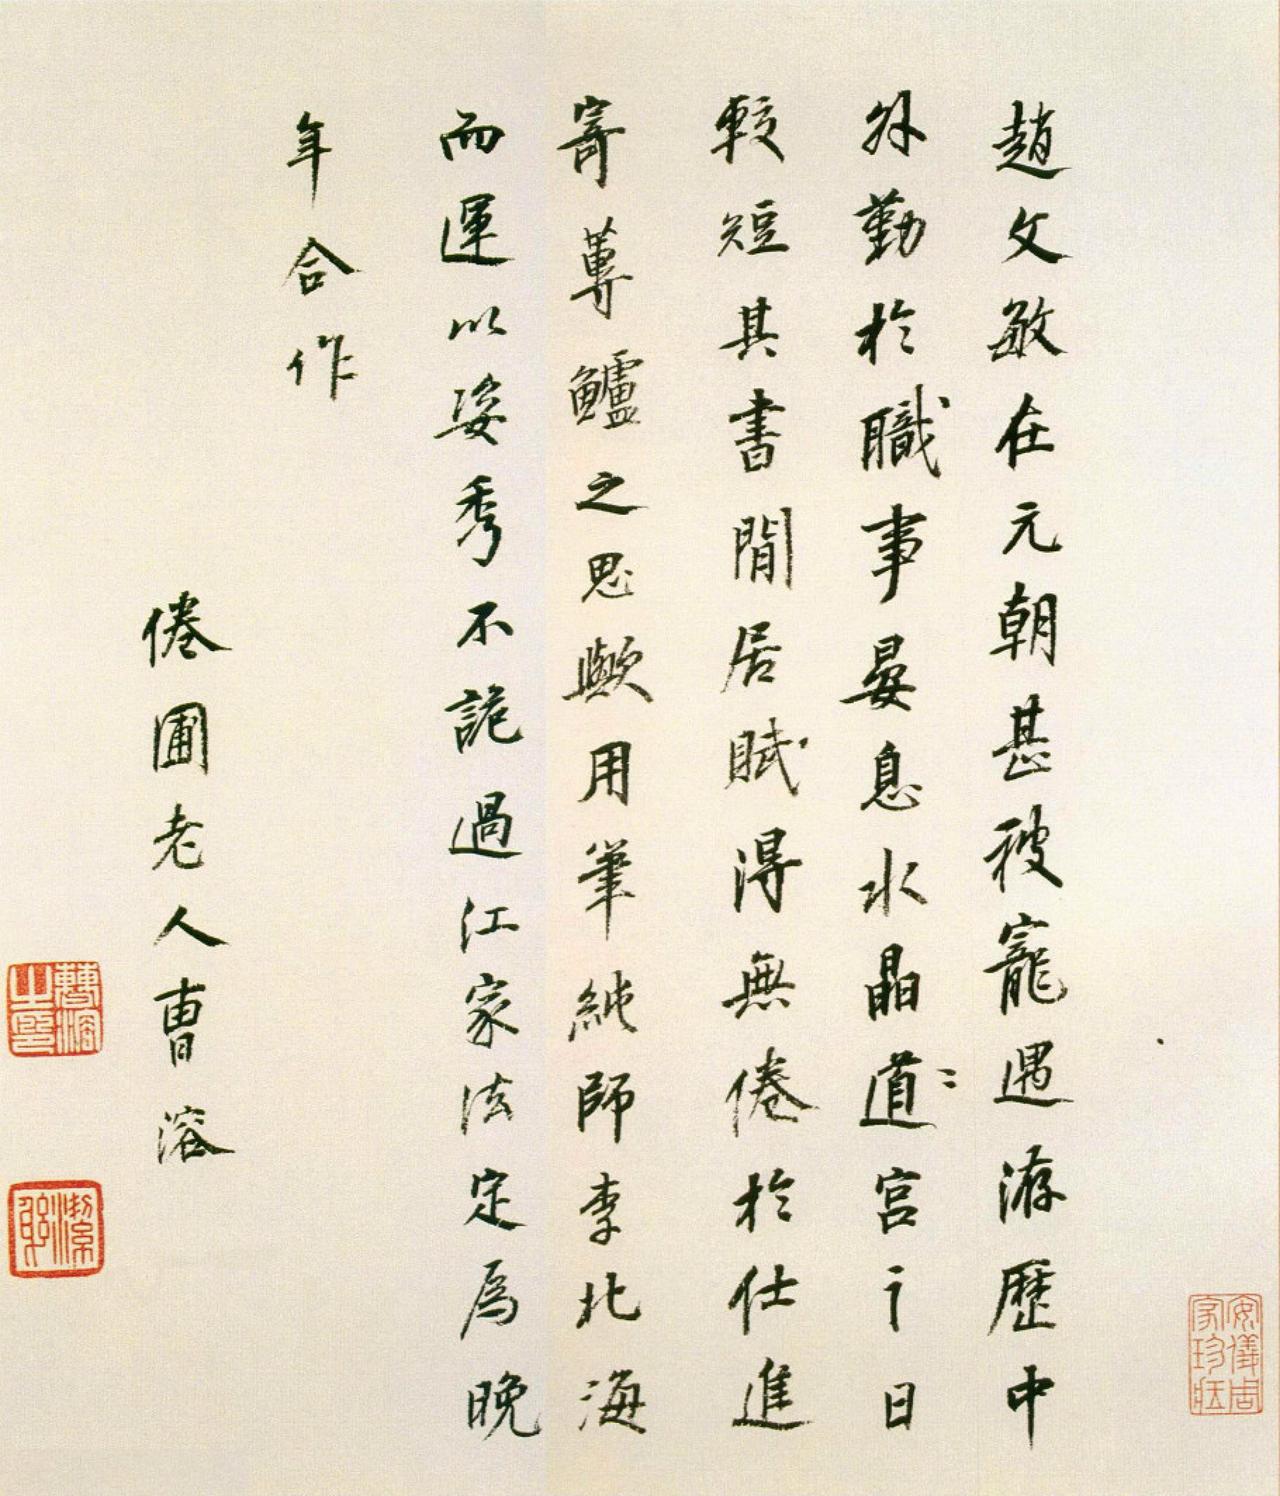 趙文敏在元朝甚被寵遇游歷中
外勤於職事晏息水晶道宮之日
較短其書閒居賦得無倦於仕進
寄蓴鱸之思歟用筆純師李北海
而運以姿秀不詭過江家法定為晚
年合作
倦圃老人曹溶
曹溶之印
潔躬
安儀周家珍藏